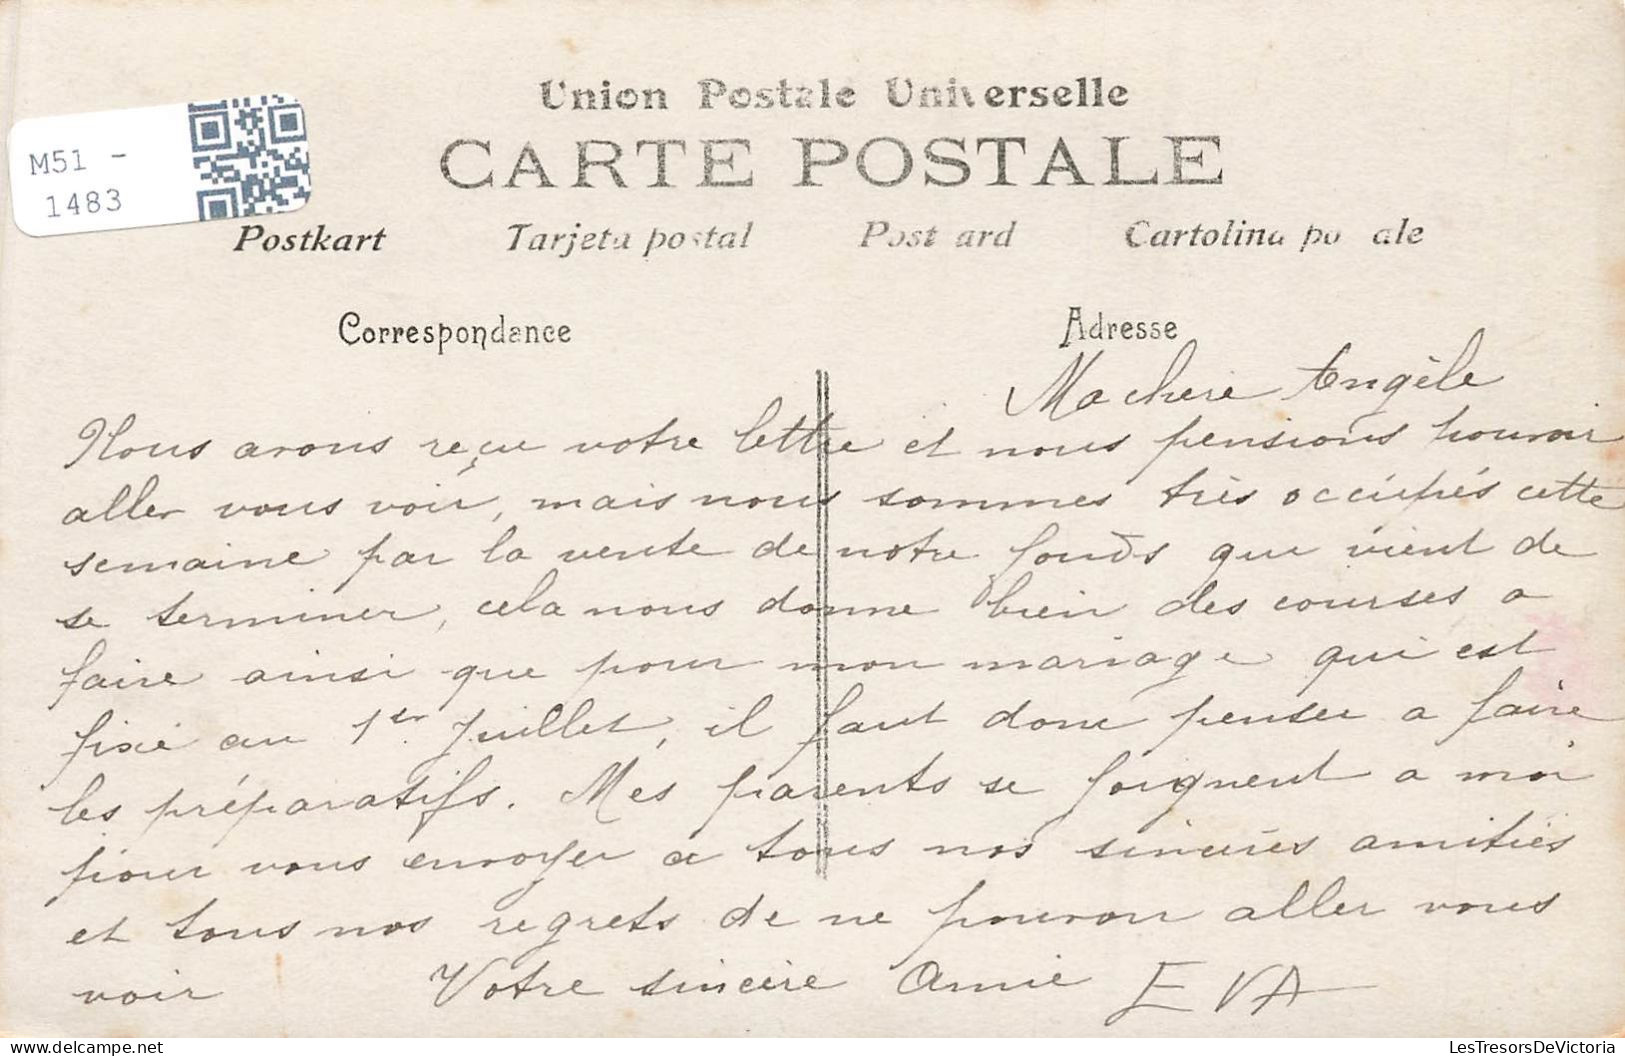 Union Postale Universelle
CARTE POSTALE
M51 -
1483
Postkart Tarjeta postal Post ard Cartolina po ale
Correspondance Adresse
Ma chere Angèle
Nous avons reçu votre lettre et nous pensions pouvoir
aller vous voir, mais nous sommes très occupés cette
semaine par la vente de notre fonds que vient de
se terminer, cela nous donne bien des courses a
faire ainsi que pour mon mariage qui est
fixé au 1er Juillet, il faut donc penser a faire
les préparatifs. Mes parents se joignent a moi
pour vous envoyer a tous nos sincères amitiés
et tous nos regrets de ne pouvoir aller vous
voir Votre sincère Amie EVA
LesTresorsDeVictoria